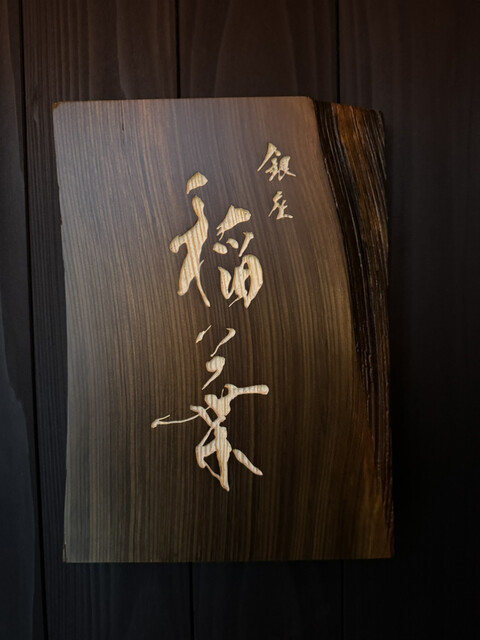 銀座
稲葉